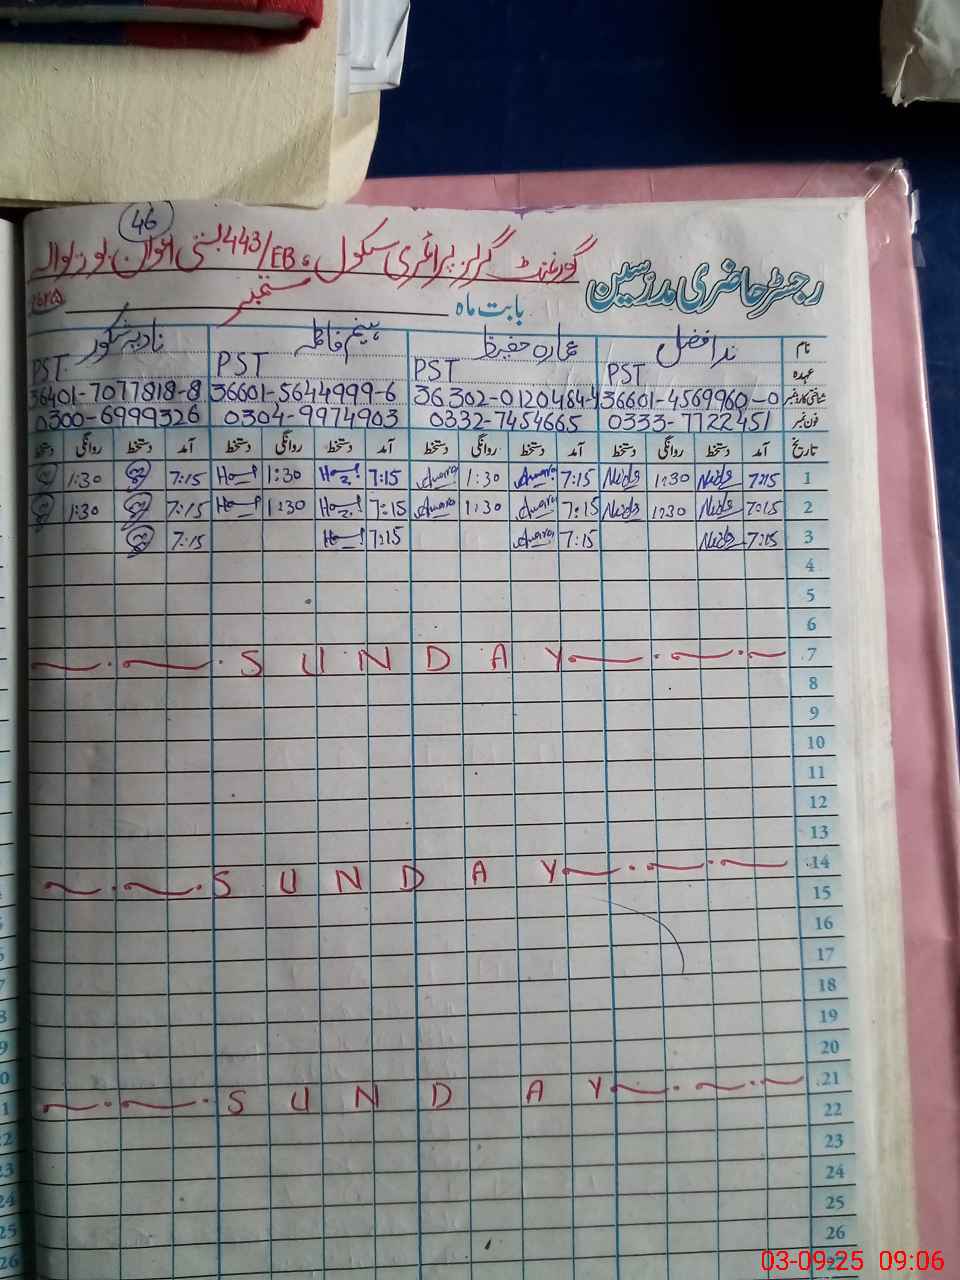 46
گورنمنٹ گرلز پرائمری سکول 443/EB بستی اعوان بورے والہ
رجسٹر حاضری مدرسین
بابت ماہ ستمبر
نام ندا افضل عمارہ حفیظ ہینم فاطمہ نادیہ شکور
عہدہ PST PST PST PST
شناختی کارڈ نمبر 36601-4569960-0 36302-0120484-4 36601-5644999-6 36401-7077818-8
فون نمبر 0333-7722451 0332-7454665 0304-9974903 0300-6999326
تاریخ آمد دستخط روانگی دستخط آمد دستخط روانگی دستخط آمد دستخط روانگی دستخط آمد دستخط روانگی دستخط
1 7:15 Nida 1:30 Nida 7:15 1:30 7:15 1:30 7:15 1:30
2 7:15 Nida 1:30 Nida 7:15 1:30 7:15 1:30 7:15 1:30
3 7:15 Nida 7:15 7:15 7:15
4
5
6
7 SUNDAY
8
9
10
11
12
13
14 SUNDAY
15
16
17
18
19
20
21 SUNDAY
22
23
24
25
26
27
03-09-25 09:06